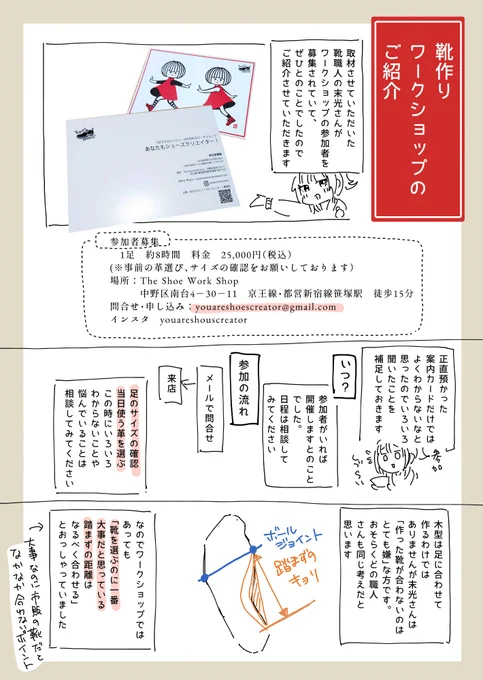 靴作り
ワークショップの
ご紹介
取材させていただいた
靴職人の末光さんが
ワークショップの参加者を
募集されていて、
ぜひとのことでしたので
ご紹介させていただきます
あなたもシューズクリエイター！
参加者募集
1足　約8時間　料金　25,000円(税込)
(※事前の革選び、サイズの確認をお願いしております)
場所：The Shoe Work Shop
中野区南台4－30－11　京王線・都営新宿線笹塚駅　徒歩15分
問合せ・申し込み：youareshoescreator@gmail.com
インスタ　youareshouscreator
正直預かった
案内カードだけでは
よくわからないなと
思ったのでいろいろ
聞いたことを
補足しておきます
参加
いつ？
参加者がいれば
開催しますとのこと
でした。
日程は相談して
みてください
参加の流れ
メールで問合せ
来店
足のサイズの確認
当日使う革を選ぶ
この時にいろいろ
わからないことや
悩んでいることは
相談してみてください
木型は足に合わせて
作るわけでは
ありませんが末光さんは
「作った靴が合わないのは
とても嫌」な方です。
おそらくどの職人
さんも同じ考えだと
思います
ボール
ジョイント
踏まずの
キョリ
なのでワークショップでは
あっても
「靴を選ぶのに一番
大事だと思っている
踏まずの距離は
なるべく合わせる」
とおっしゃっていました
→大事なのに市販の靴だと
なかなか合わないポイント